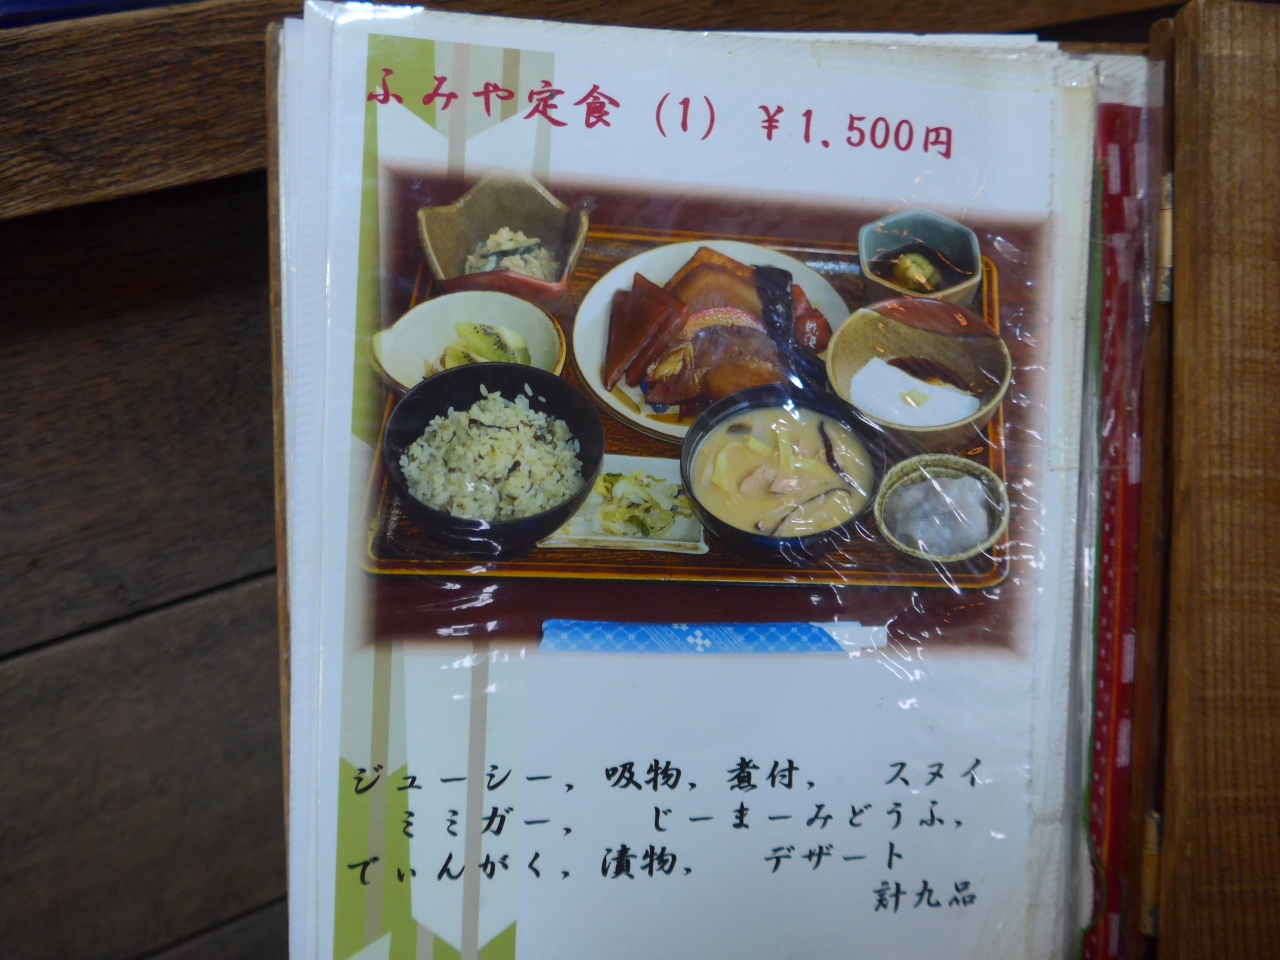 ふみや定食 (1) ¥1.500円
ジューシー, 吸物, 煮付, スヌイ
ミミガー, じーまーみどうふ,
でぃんがく, 漬物, デザート
計九品